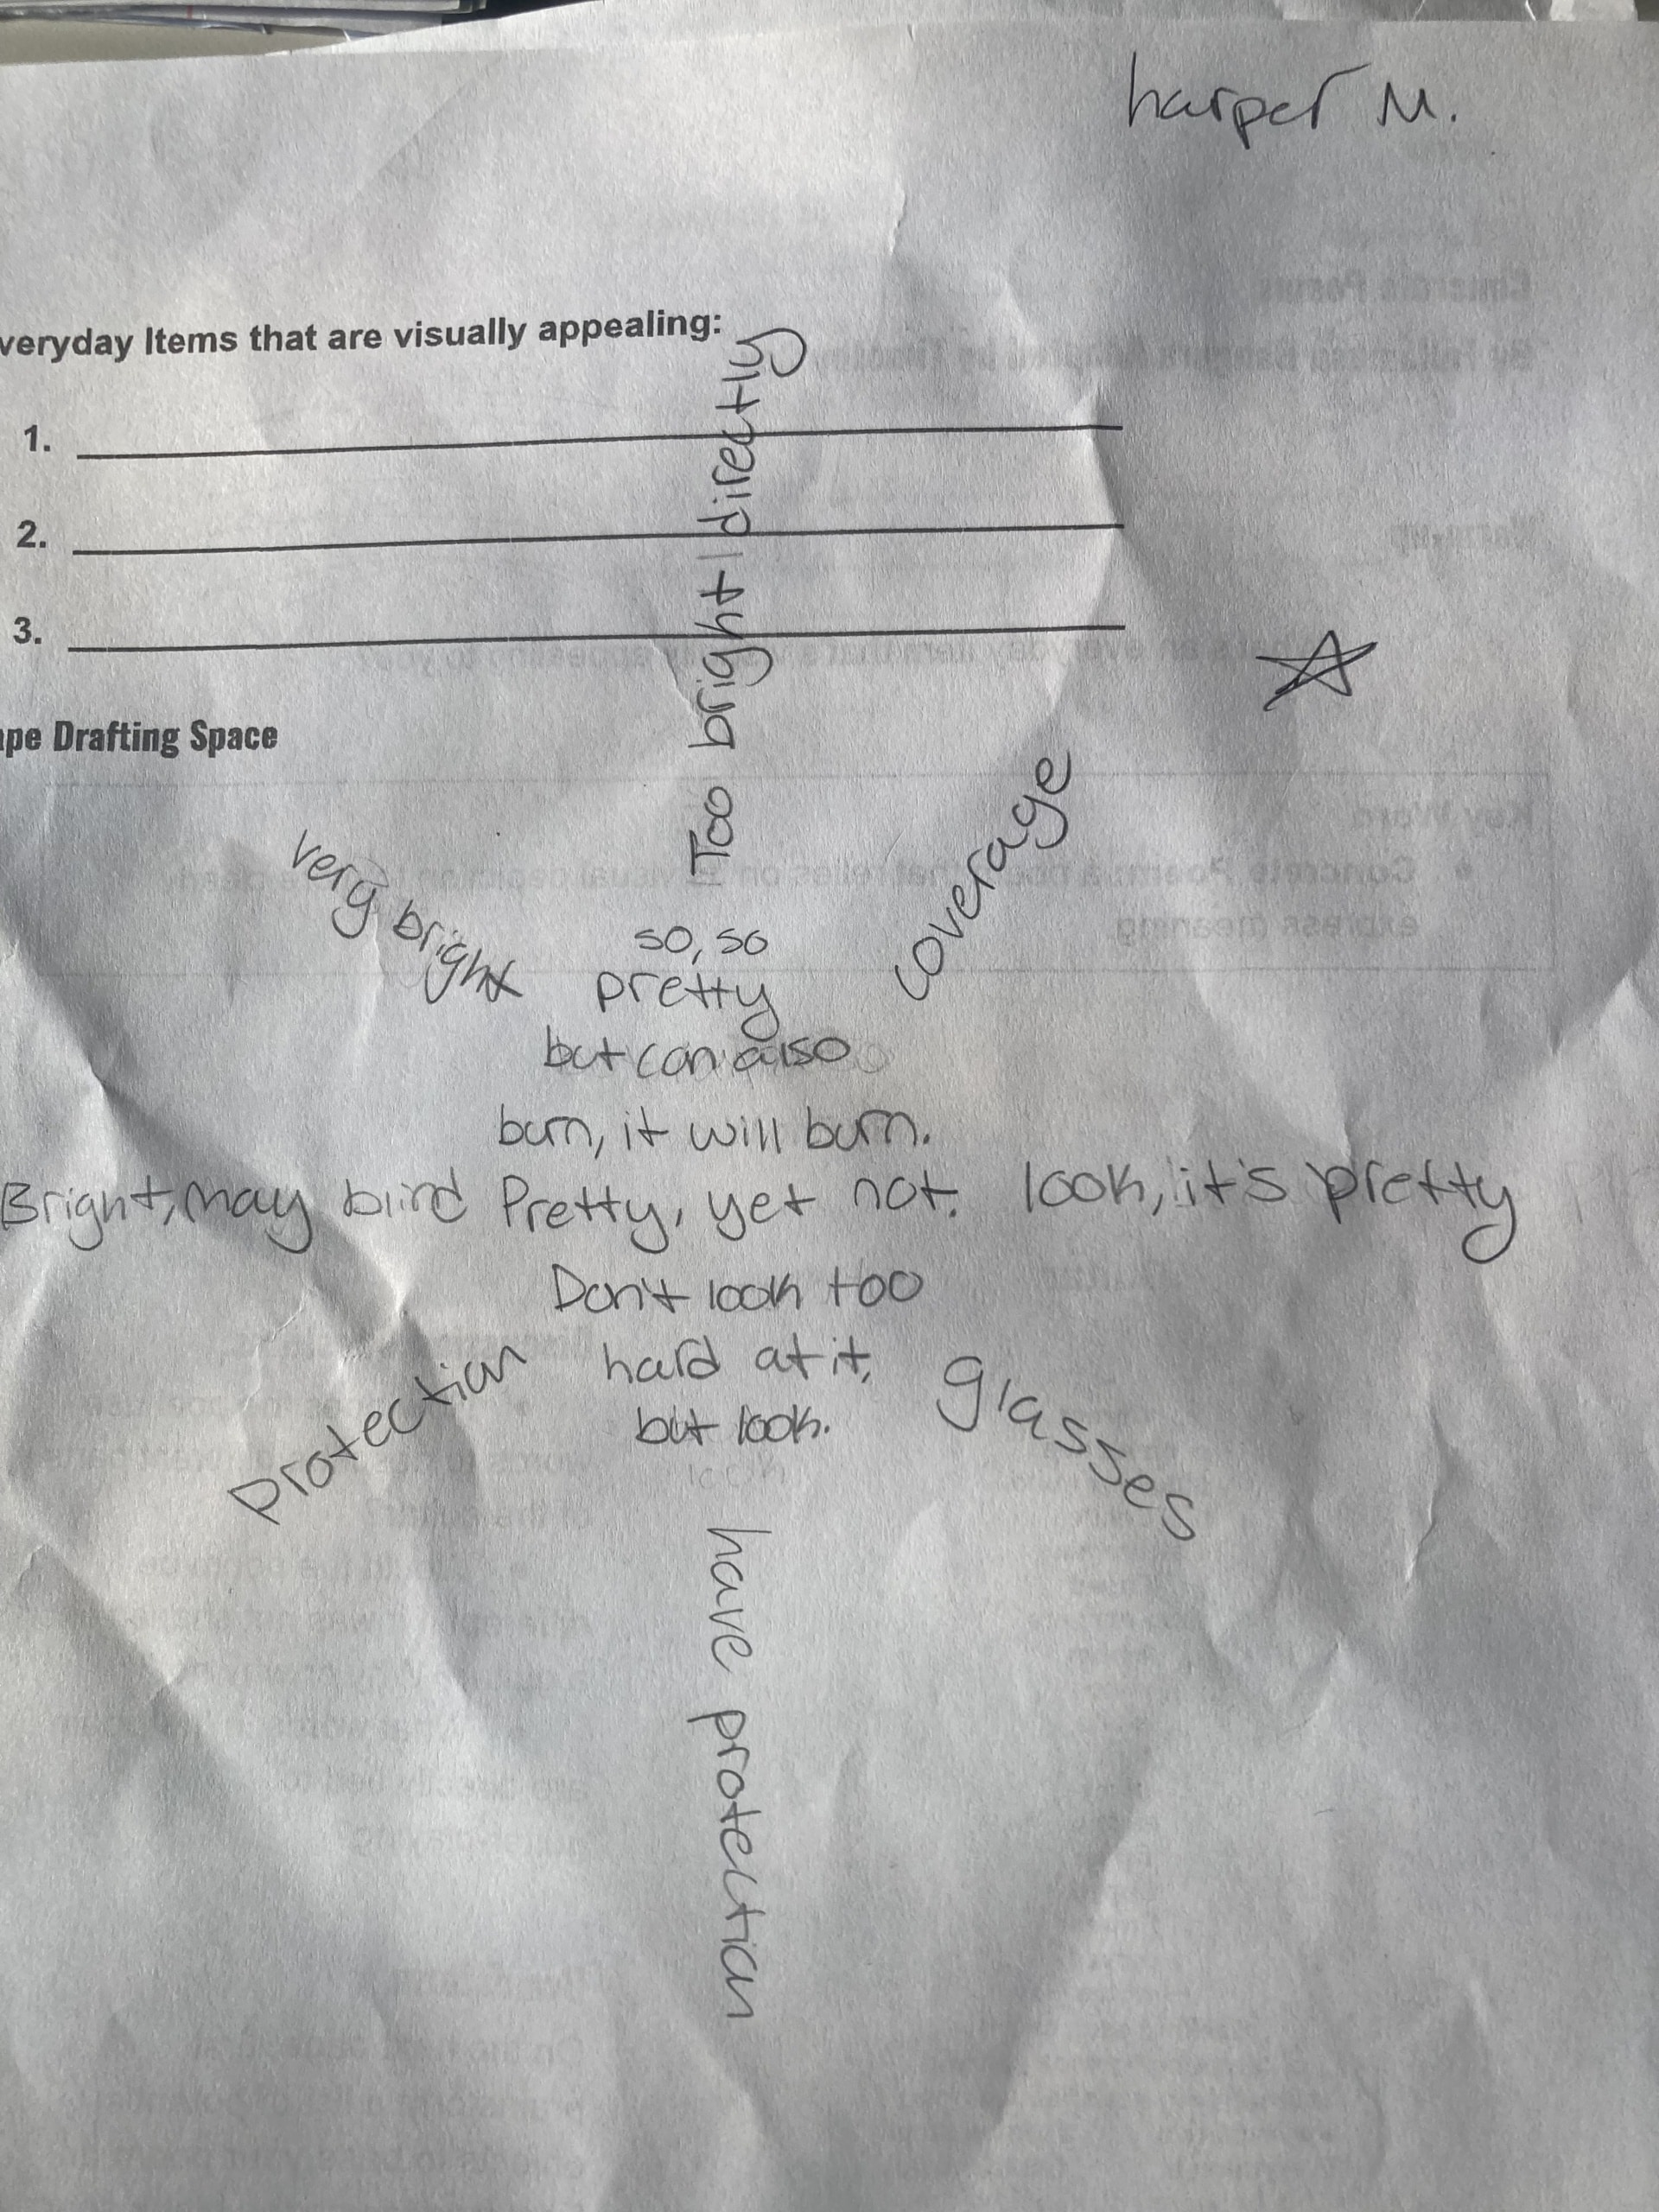 harper M.
veryday Items that are visually appealing:
1.
2.
3.
ape Drafting Space
Too bright directly
very bright
coverage
so, so
pretty
but can also
burn, it will burn.
Bright, may blind Pretty, yet not. look, it's pretty
Don't look too
hard at it,
but look.
Protection
glasses
have protection